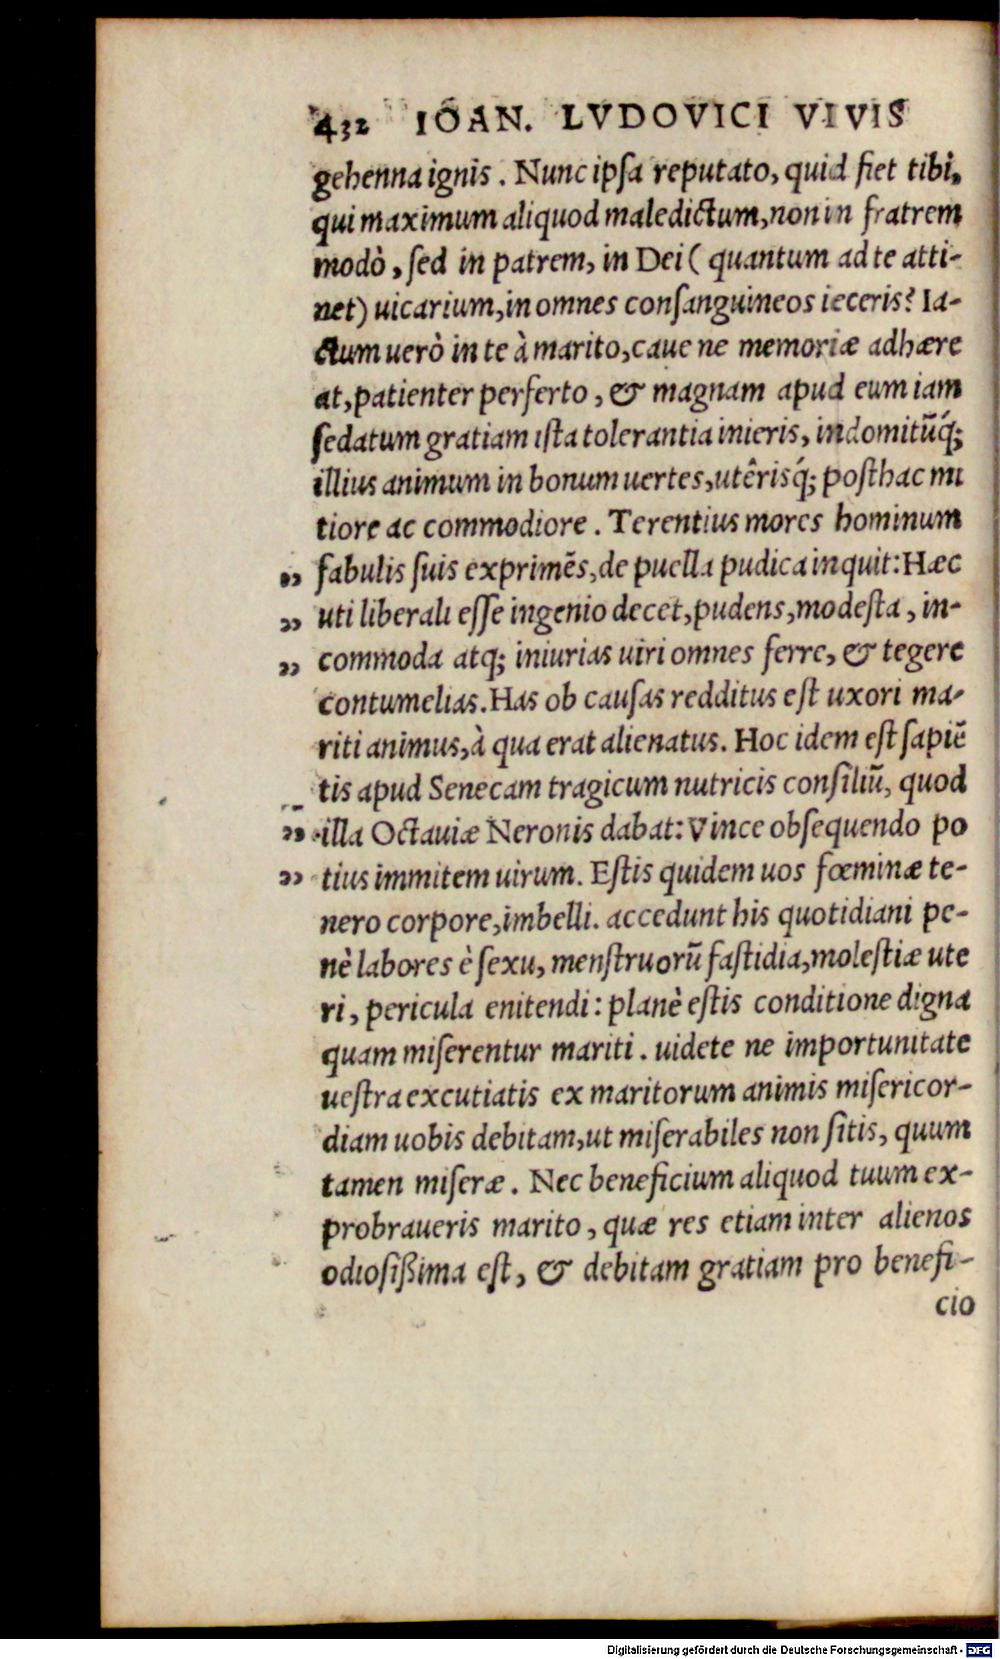 432 IOAN. LVDOVICI VIVIS
gehenna ignis. Nunc ipsa reputato, quid fiet tibi,
qui maximum aliquod maledictum, non in fratrem
modò, sed in patrem, in Dei ( quantum ad te atti-
net) uicarium, in omnes consanguineos ieceris? Ia-
ctum uerò in te à marito, caue ne memoriæ adhære
at, patienter perferto, & magnam apud eum iam
sedatum gratiam ista tolerantia inieris, indomitũq́;
illius animum in bonum uertes, utêrisq́; posthac mi
tiore ac commodiore. Terentius mores hominum
„ fabulis suis exprimẽs, de puella pudica inquit: Hæc
„ uti liberali esse ingenio decet, pudens, modesta, in-
„ commoda atq; iniurias uiri omnes ferre, & tegere
contumelias. Has ob causas redditus est uxori ma-
riti animus, à qua erat alienatus. Hoc idem est sapiẽ
tis apud Senecam tragicum nutricis consiliũ, quod
„ illa Octauiæ Neronis dabat: Vince obsequendo po
„ tius immitem uirum. Estis quidem uos fœminæ te-
nero corpore, imbelli. accedunt his quotidiani pe-
nè labores è sexu, menstruorũ fastidia, molestiæ ute
ri, pericula enitendi: planè estis conditione digna
quam miserentur mariti. uidete ne importunitate
uestra excutiatis ex maritorum animis misericor-
diam uobis debitam, ut miserabiles non sitis, quum
tamen miseræ. Nec beneficium aliquod tuum ex-
probraueris marito, quæ res etiam inter alienos
odiosißima est, & debitam gratiam pro benefi-
cio
Digitalisierung gefördert durch die Deutsche Forschungsgemeinschaft - DFG